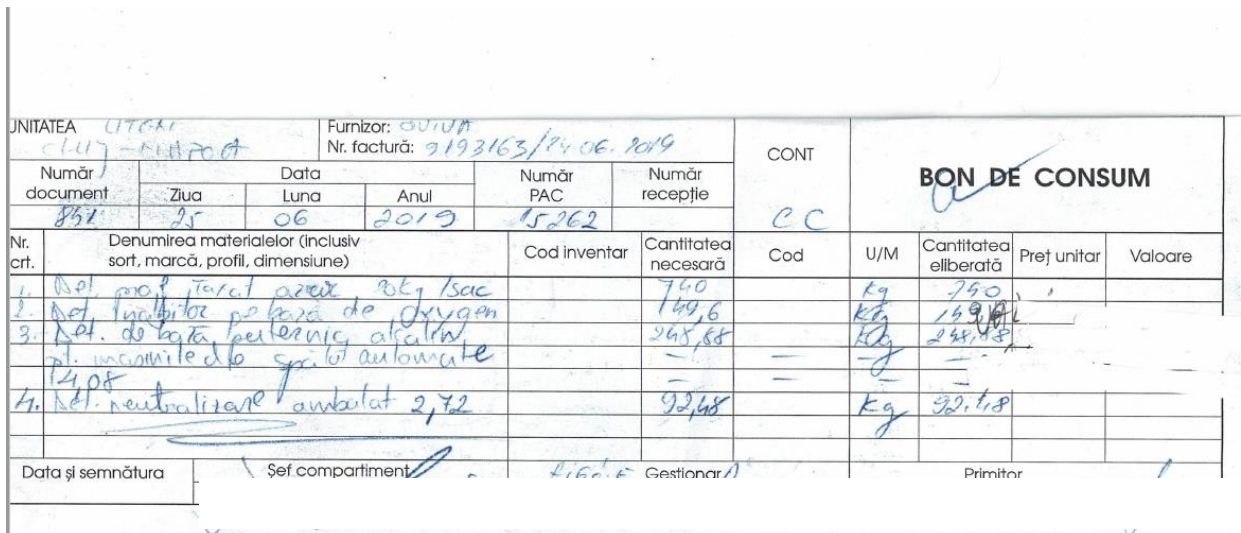 UNITATEA Furnizor:
CLUJ-NAPOCA Nr. factură: 9193163/24.06.2019 CONT
BON DE CONSUM
Număr document Data Număr PAC Număr recepție
Ziua Luna Anul
851 25 06 2019 15262 C C
Nr. crt. Denumirea materialelor (inclusiv sort, marcă, profil, dimensiune) Cod inventar Cantitatea necesară Cod U/M Cantitatea eliberată Preț unitar Valoare
1. Det. prof 20kg/sac 740 Kg 740
2. Det. Înalbitor pe bază de oxygen 149,6 Kg
3. Det. de bază puternic alcalin 248,88 Kg 248,88
pt. masinile de spălat automate — — — —
14,08 — — — —
4. Det. neutralizare ambalat 2,72 92,48 Kg 92,48
Data și semnătura Șef compartiment Gestionar Primitor